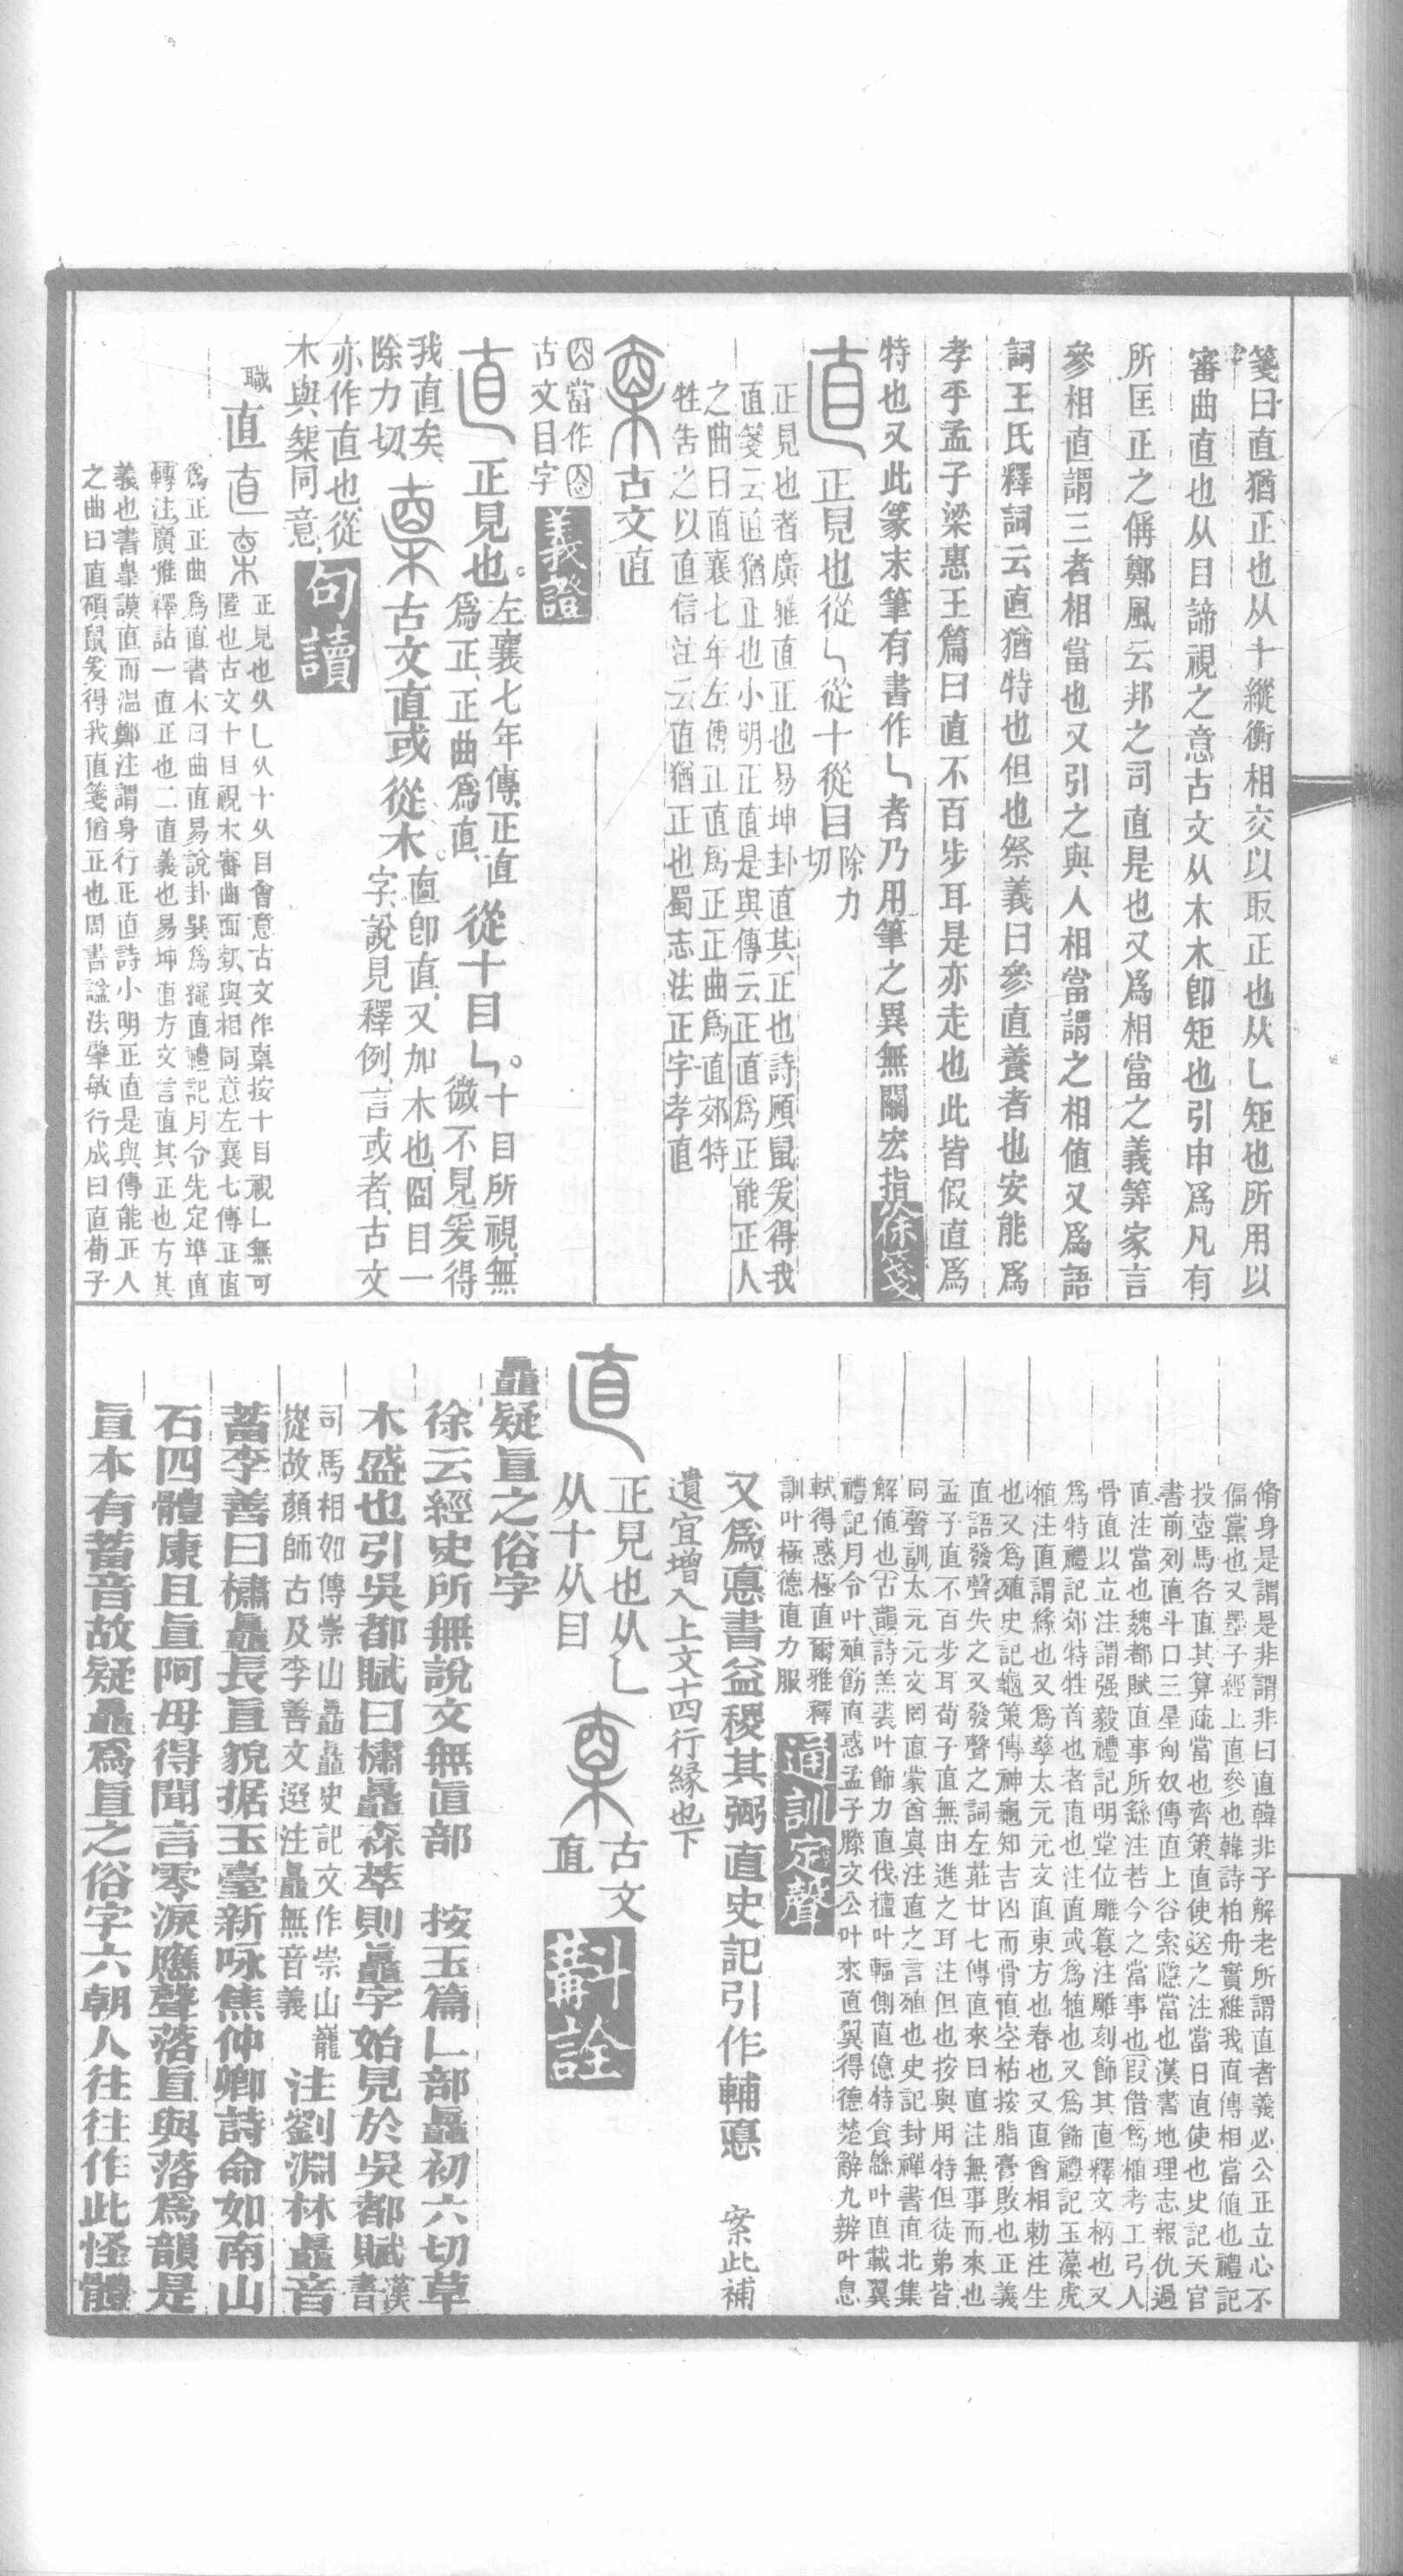 箋曰直猶正也从十縱衡相交以取正也从乚矩也所用以
審曲直也从目諦視之意古文从木木卽矩也引申爲凡有
所匡正之偁鄭風云邦之司直是也又爲相當之義筭家言
參相直謂三者相當也又引之與人相當謂之相值又爲語
詞王氏釋詞云直猶特也但也祭義曰參直養者也安能爲
孝乎孟子梁惠王篇曰直不百步耳是亦走也此皆假直爲
特也又此篆末筆有書作乚者乃用筆之異無關宏指徐箋
直正見也從乚從十從目除力切
正見也者廣雅直正也易坤卦直其正也詩碩鼠爰得我
直箋云直猶正也小明正直是與傳云正直爲正能正人
之曲曰直襄七年左傳正直爲正正曲爲直郊特
牲告之以直信注云直猶正也蜀志法正字孝直
古文直
囟當作囧
古文目字義證
直正見也。左襄七年傳、正直爲正、正曲爲直、從十目乚。十目所視、無微不見、爰得
我直矣、除力切、古文直或從木。直卽直、又加木也、囧目一字、說見釋例、言或者、古文
亦作直也、從
木與槼同意、句讀
職直直正見也从乚从十从目會意古文作㮨按十目視乚無可
匿也古文十目視木審曲面埶與相同意左襄七傳正直
爲正正曲爲直書木曰曲直易說卦巽爲繩直禮記月令先定準直
轉注廣雅釋詁一直正也二直義也易坤直方文言直其正也方其
義也書皋謨直而溫鄭注謂身行正直詩小明正直是與傳能正人
之曲曰直碩鼠爰得我直箋猶正也周書諡法肇敏行成曰直荀子
脩身是謂是非謂非曰直韓非子解老所謂直者義必公正立心不
偏黨也又墨子經上直參也韓詩柏舟實維我直傳相當值也禮記
投壺馬各直其算疏當也齊策直使送之注當日直使也史記天官
書前列直斗口三星匈奴傳直上谷索隱當也漢書地理志報仇過
直注當也魏都賦直事所繇注若今之當事也叚借爲植考工弓人
骨直以立注謂强毅禮記明堂位雕篹注雕刻飾其直釋文柄也又
爲特禮記郊特牲首也者直也注直或爲犆也又爲飾禮記玉藻虎
犆注直謂緣也又爲孳太元元文直東方也春也又直酋相勑注生
也又爲殖史記龜策傳神龜知吉凶而骨直空枯按脂膏敗也正義
直語發聲失之又發聲之詞左莊廿七傳直來曰直注無事而來也
孟子直不百步耳荀子直無由進之耳注但也按與用特但徒弟皆
同聲訓太元元文罔直蒙酋冥注直之言殖也史記封禪書直北集
解值也古韻詩羔裘叶飾力直伐檀叶輻側直億特食緜叶直載翼
禮記月令叶殖飭直惑孟子滕文公叶來直翼得德楚辭九辨叶息
軾得惑極直爾雅釋
訓叶極德直力服通訓定聲
又爲悳書益稷其弼直史記引作輔悳　案此補
遺宜增入上文十四行緣也下
直正見也从乚
从十从目古文
直斠詮
矗疑直之俗字
徐云經史所無說文無直部　按玉篇乚部矗初六切草
木盛也引吳都賦曰橚矗森萃則矗字始見於吳都賦漢書
司馬相如傳崇山矗矗史記文作崇山巃
嵸故顏師古及李善文選注矗無音義注劉淵林矗音
蓄李善曰橚矗長直貌据玉臺新咏焦仲卿詩命如南山
石四體康且直阿母得聞言零淚應聲落直與落爲韻是
直本有蓄音故疑矗爲直之俗字六朝人往往作此怪體